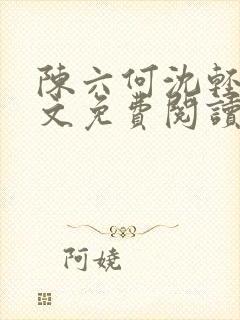 陳六何沈輕
文免費閱讀
阿嬈